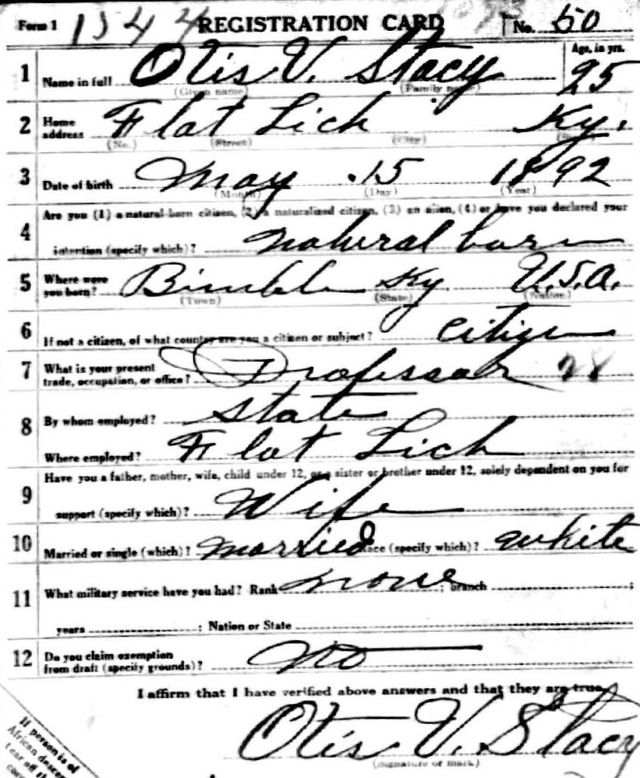 Form 1 1544 REGISTRATION CARD No. 50
1 Name in full Otis V. Stacy Age, in yrs. 25
(Given name) (Family name)
2 Home address Flat Lick Ky.
(No.) (Street) (City) (State)
3 Date of birth May 15 1892
(Month) (Day) (Year)
4 Are you (1) a natural-born citizen, (2) a naturalized citizen, (3) an alien, (4) or have you declared your
intention (specify which)? natural born
5 Where were you born? Bimble Ky U.S.A.
(Town) (State) (Nation)
6 If not a citizen, of what country are you a citizen or subject? citizen
7 What is your present trade, occupation, or office? Professor 28
8 By whom employed? State
Where employed? Flat Lick
9 Have you a father, mother, wife, child under 12, or a sister or brother under 12, solely dependent on you for
support (specify which)? Wife
10 Married or single (which)? married Race (specify which)? white
11 What military service have you had? Rank none ; branch ;
years ; Nation or State
12 Do you claim exemption from draft (specify grounds)? No
I affirm that I have verified above answers and that they are true.
Otis V. Stacy
(Signature or mark)
If person is of
African
tear off